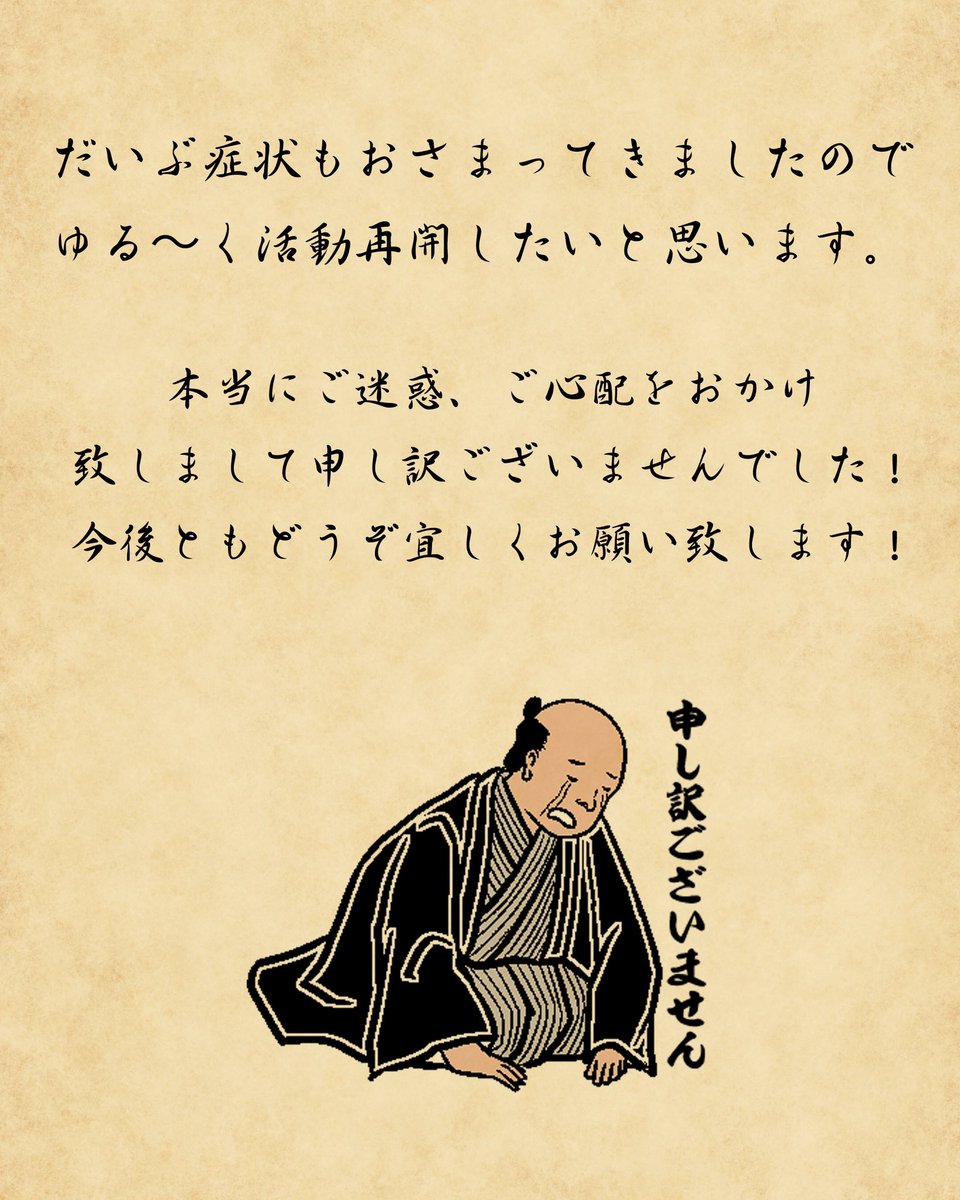 だいぶ症状もおさまってきましたので
ゆる〜く活動再開したいと思います。
本当にご迷惑、ご心配をおかけ
致しまして申し訳ございませんでした！
今後ともどうぞ宜しくお願い致します！
申し訳ございません